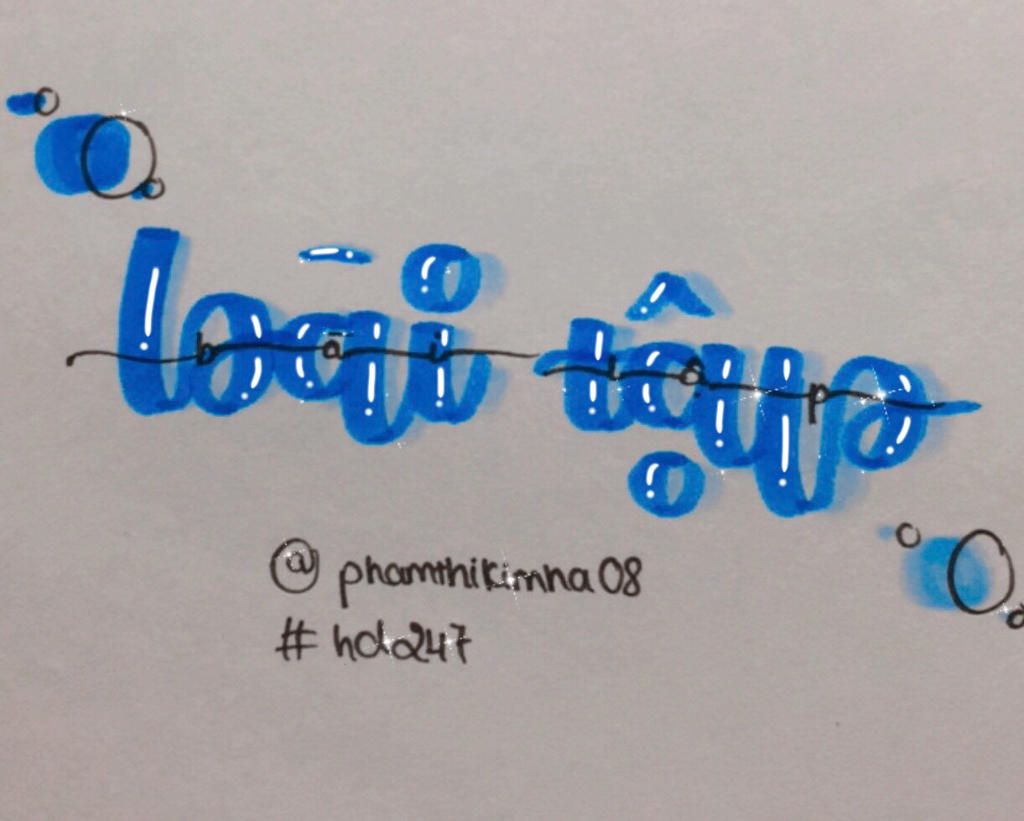 bài tập
bài tập
@phamthikimna08
#hd247